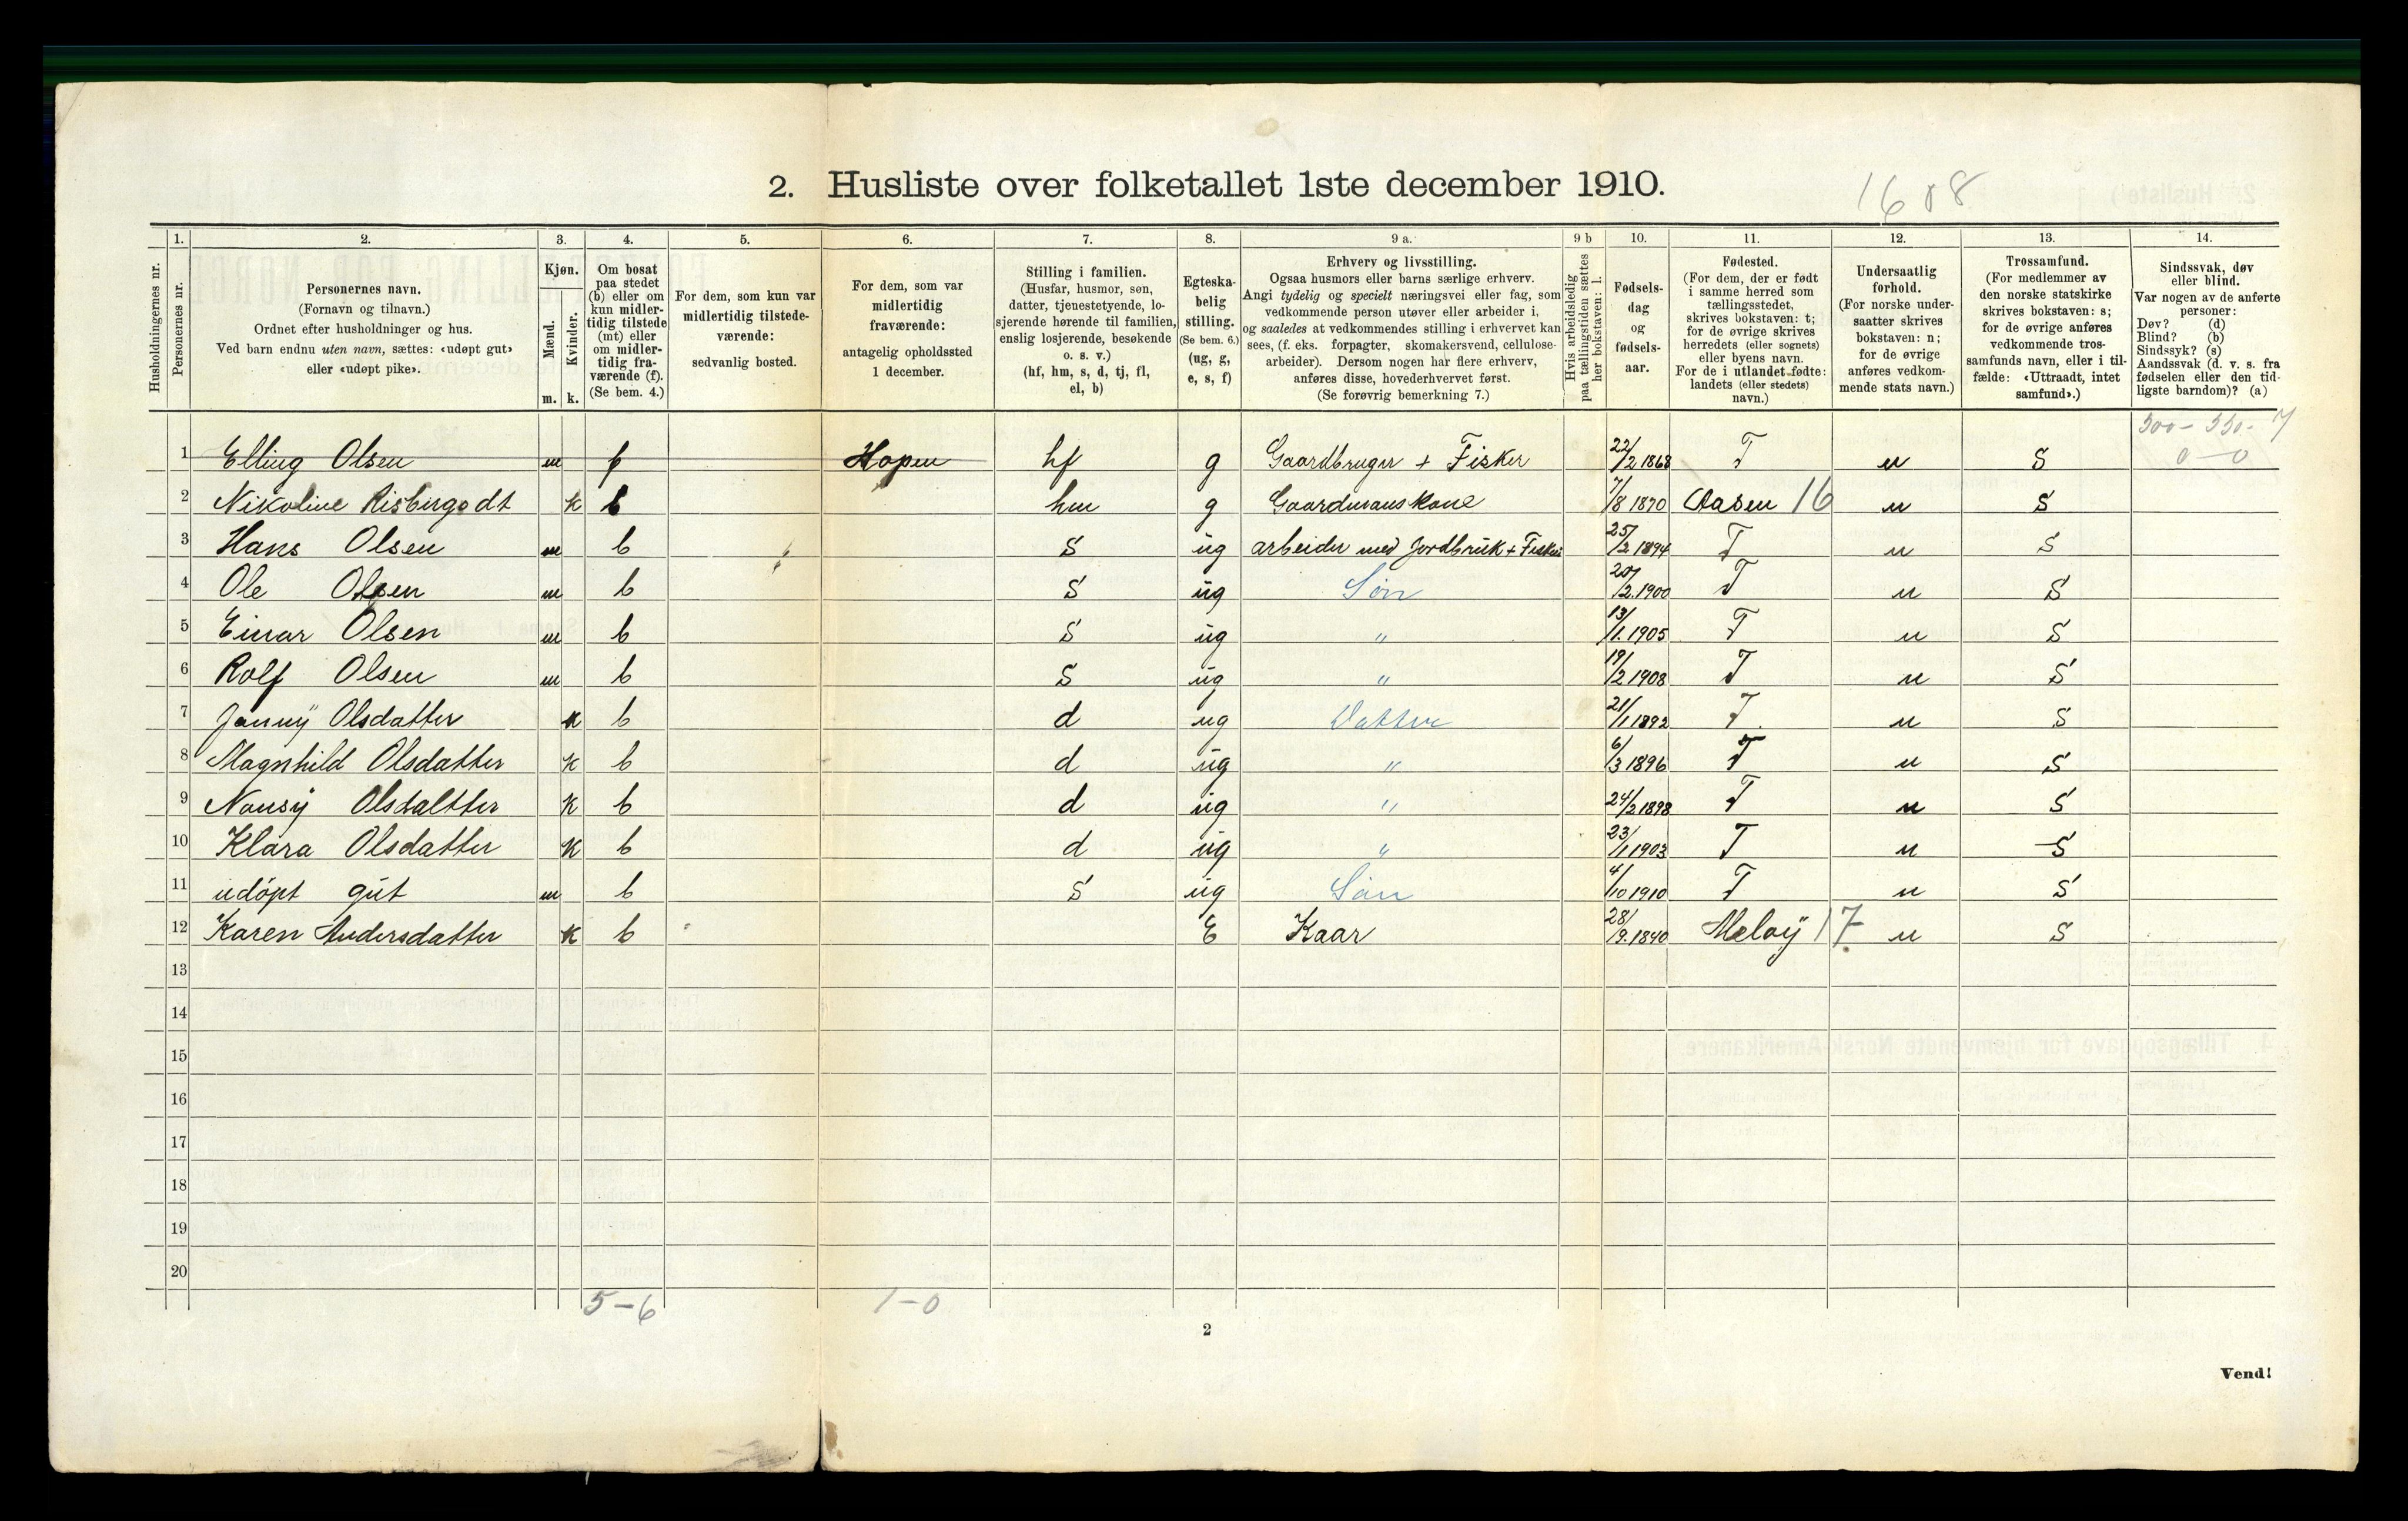 2. Husliste over folketallet 1ste december 1910.
1608
Husholdningernes nr.
1. Personernes nr.
2. Personernes navn.
(Fornavn og tilnavn.)
Ordnet efter husholdninger og hus.
Ved barn endnu uten navn, sættes: «udøpt gut»
eller «udøpt pike».
3. Kjøn.
Mænd. m.
Kvinder. k.
4. Om bosat
paa stedet
(b) eller om
kun midler-
tidig tilstede
(mt) eller
om midler-
tidig fra-
værende (f).
(Se bem. 4.)
5. For dem, som kun var
midlertidig tilstede-
værende:
sedvanlig bosted.
6. For dem, som var
midlertidig
fraværende:
antagelig opholdssted
1 december.
7. Stilling i familien.
(Husfar, husmor, søn,
datter, tjenestetyende, lo-
sjerende hørende til familien,
enslig losjerende, besøkende
o. s. v.)
(hf, hm, s, d, tj, fl,
el, b)
8. Egteska-
belig
stilling.
(Se bem. 6.)
(ug, g,
e, s, f)
9 a. Erhverv og livsstilling.
Ogsaa husmors eller barns særlige erhverv.
Angi tydelig og specielt næringsvei eller fag, som
vedkommende person utøver eller arbeider i,
og saaledes at vedkommendes stilling i erhvervet kan
sees, (f. eks. forpagter, skomakersvend, cellulose-
arbeider). Dersom nogen har flere erhverv,
anføres disse, hovederhvervet først.
(Se forøvrig bemerkning 7.)
9 b Hvis arbeidsledig
paa tællingstiden sættes
her bokstaven: l.
10. Fødsels-
dag
og
fødsels-
aar.
11. Fødested.
(For dem, der er født
i samme herred som
tællingsstedet,
skrives bokstaven: t;
for de øvrige skrives
herredets (eller sognets)
eller byens navn.
For de i utlandet fødte:
landets (eller stedets)
navn.)
12. Undersaatlig
forhold.
(For norske under-
saatter skrives
bokstaven: n;
for de øvrige
anføres vedkom-
mende stats navn.)
13. Trossamfund.
(For medlemmer av
den norske statskirke
skrives bokstaven: s;
for de øvrige anføres
vedkommende tros-
samfunds navn, eller i til-
fælde: «Uttraadt, intet
samfund».)
14. Sindssvak, døv
eller blind.
Var nogen av de anførte
personer:
Døv? (d)
Blind? (b)
Sindssyk? (s)
Aandssvak (d. v. s. fra
fødselen eller den tid-
ligste barndom)? (a)
1 Elling Olsen m f Hopen hf g Gaardbruger + Fisker 22/2 1868 T n S 0-0
2 Nikoline Risbergsdt k b hm g Gaardmanskone 7/8 1870 Aasen 16 n S
3 Hans Olsen m b S ug arbeider med Jordbruk + Fisker 25/2 1894 T n S
4 Ole Olsen m b S ug Søn 20/2 1900 T n S
5 Einar Olsen m b S ug " 13/1 1905 T n S
6 Rolf Olsen m b S ug " 19/2 1908 T n S
7 Janny Olsdatter k b d ug Datter 21/1 1892 T n S
8 Magnhild Olsdatter k b d ug " 6/3 1896 T n S
9 Nansy Olsdaltter k b d ug " 24/2 1898 T n S
10 Klara Olsdatter k b d ug " 23/1 1903 T n S
11 udöpt gut m b S ug Søn 4/10 1910 T n S
12 Karen Andersdatter k b E Kaar 28/9 1840 Meløy 17 n S
13
14
15
16
17
18
19
20
5-6 1-0
2
Vend!